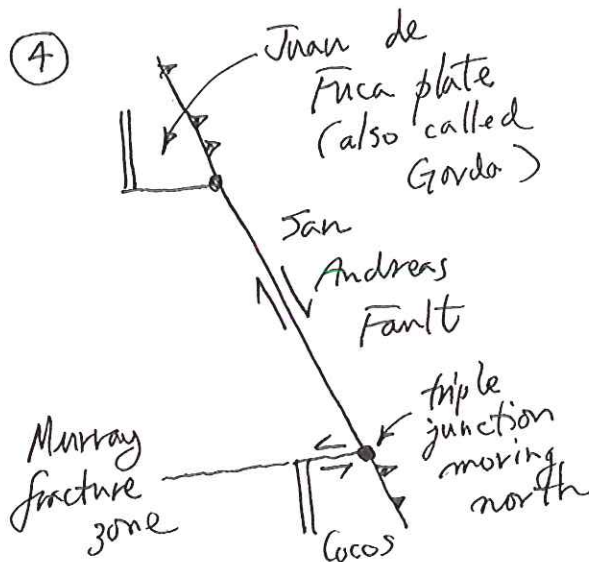 4
Juan de
Fuca plate
(also called
Gorda)
San
Andreas
Fault
triple
junction
moving
north
Murray
fracture
zone
Cocos